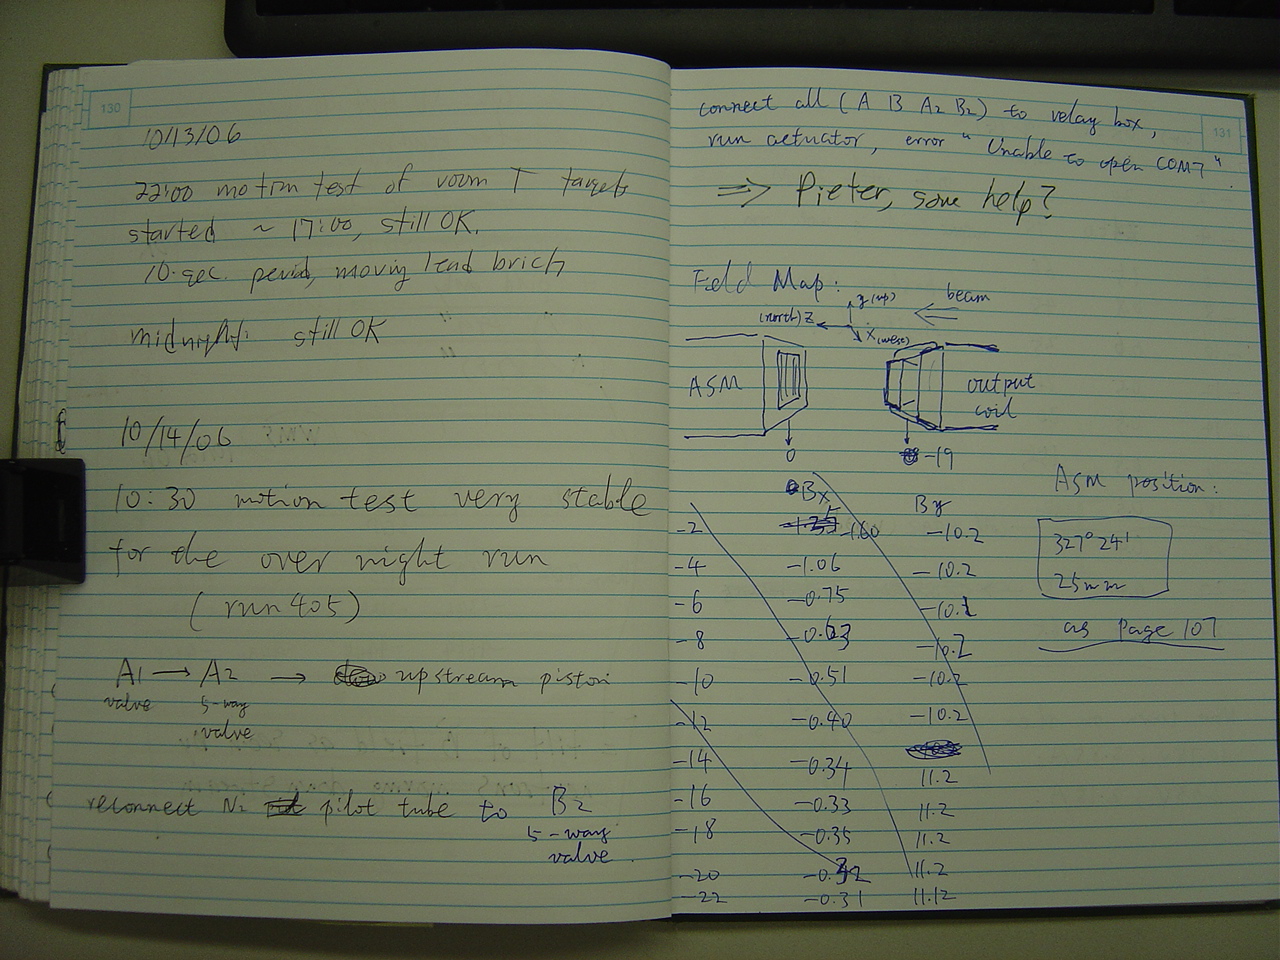 130
10/13/06
22:00 motion test of room T targets
started ~ 17:00, still OK.
10 sec. period, moving lead brick
midnight: still OK
10/14/06
10:30 motion test very stable
for the over night run
(run 405)
A1 → A2 → upstream piston
valve 5-way
valve
reconnect N2 pilot tube to B2
5-way
valve
131
connect all (A B A2 B2) to relay box,
run actuator, error "Unable to open COM7"
⇒ Pieter, some help?
Field Map:
y(up) beam
(north) z
x(west)
ASM
output
coil
0 -19
ASM position:
327° 24'
25mm
as page 107
Bx By
-2 -1.60 -10.2
-4 -1.06 -10.2
-6 -0.75 -10.2
-8 -0.63 -10.2
-10 -0.51 -10.2
-12 -0.40 -10.2
-14 -0.34 11.2
-16 -0.33 11.2
-18 -0.35 11.2
-20 -0.32 11.2
-22 -0.31 11.12